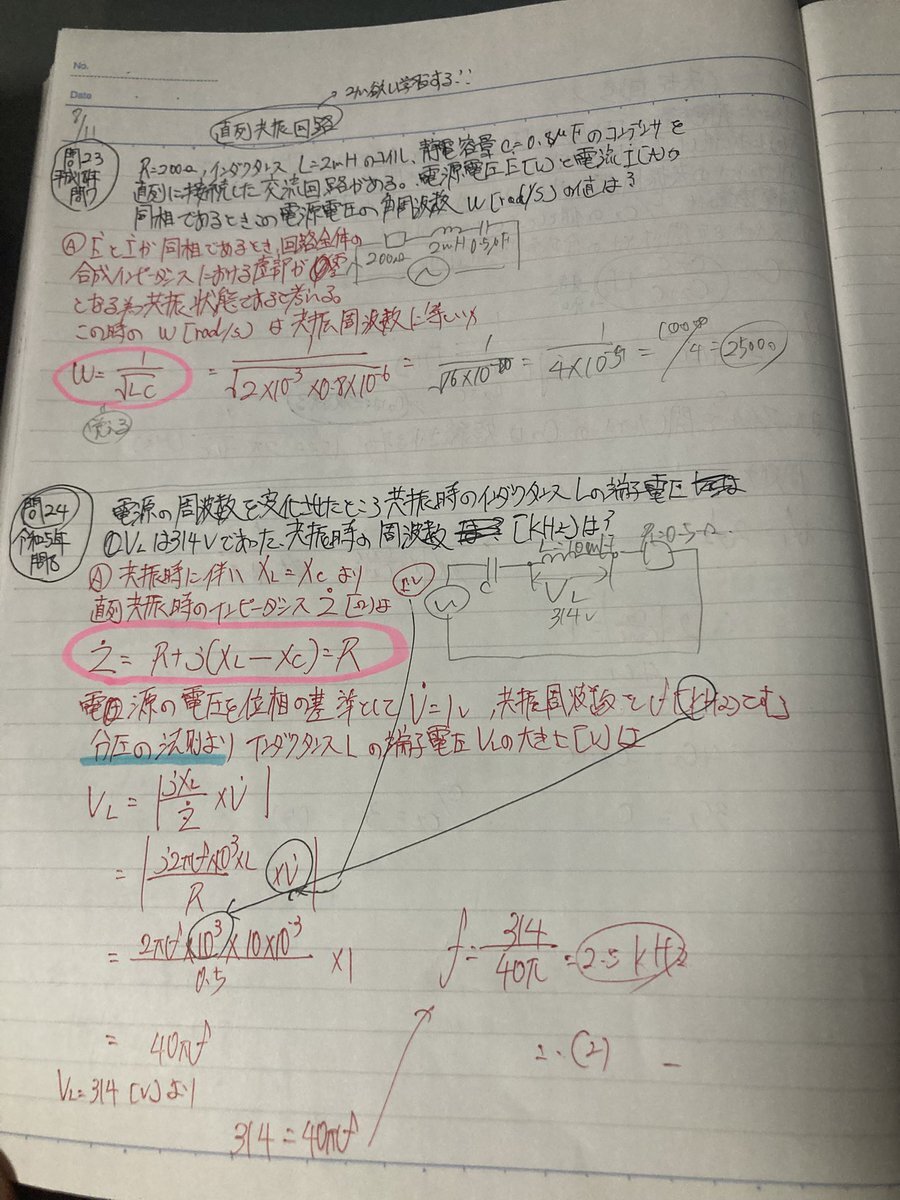 No.
Date
8/11
直列共振回路
問23
問17
R=200Ω, インダクタンス L=2mHのコイル、静電容量 C=0.8μFのコンデンサを
直列に接続した交流回路がある。電源電圧Ė[V]と電流İ[A]が
同相であるとき、この電源電圧の角周波数 ω[rad/s]の値は?
200Ω 2mH 0.5μF
Ⓐ ĖとİがW同相であるとき、回路全体の
合成インピーダンスにおける虚部が零
となるため共振状態であると考える
この時の ω[rad/s] は共振周波数に等しい
ω = 1/√LC = 1/√2×10⁻³×0.8×10⁻⁶ = 1/√16×10⁻¹⁰ = 1/4×10⁻⁵ = 100000/4 = 25000
覚える
問24
令和5年
問8
電源の周波数を変化させたところ共振時のインダクタンスLの端子電圧
VLは314Vであった、共振時の周波数 [kHz]は?
Ⓐ 共振時に伴い XL=XC より
直列共振時のインピーダンス Ż [Ω]は
1V
C
L=10mH
R=0.5Ω
VL
314V
Ż = R+j(XL−XC)=R
電源の電圧を位相の基準として V̇=1V, 共振周波数を f [kHz]とすむ
分圧の法則より インダクタンスLの端子電圧VLの大きさ[V]は
VL = |jXL/Ż ×V̇|
= |j2πf×10³×L/R ×V̇|
= 2πf×10³×10×10⁻³/0.5 ×1
= 40πf
VL=314 [V]より
314 = 40πf
f = 314/40π = 2.5 kHz
∴ (2)